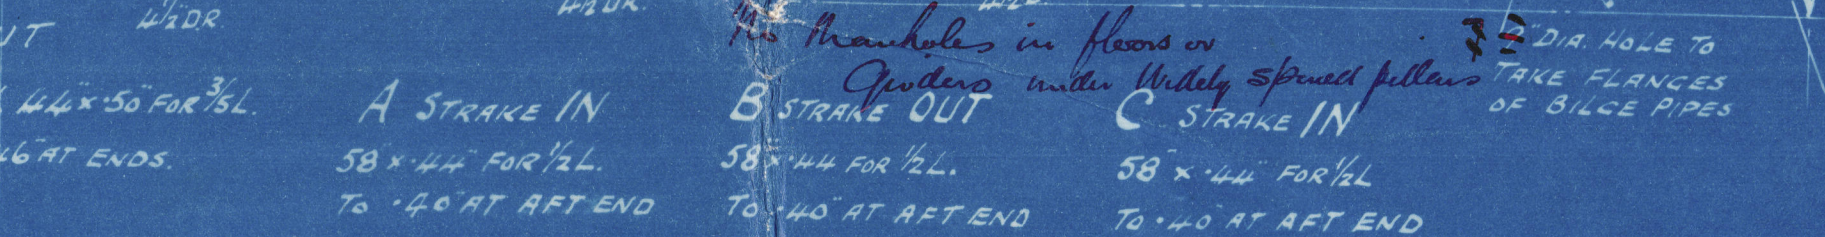 4½" DR.
4½ DR.
No Manholes in floors or
Girders under Widely spaced pillars
" DIA. HOLE TO
TAKE FLANGES
OF BILGE PIPES
44" × ·50" FOR 3/5 L.
AT ENDS.
A STRAKE IN
58" × ·44" FOR ½ L.
TO ·40" AT AFT END
B STRAKE OUT
58" × ·44 FOR ½ L.
TO ·40" AT AFT END
C STRAKE IN
58" × ·44" FOR ½ L
TO ·40" AT AFT END